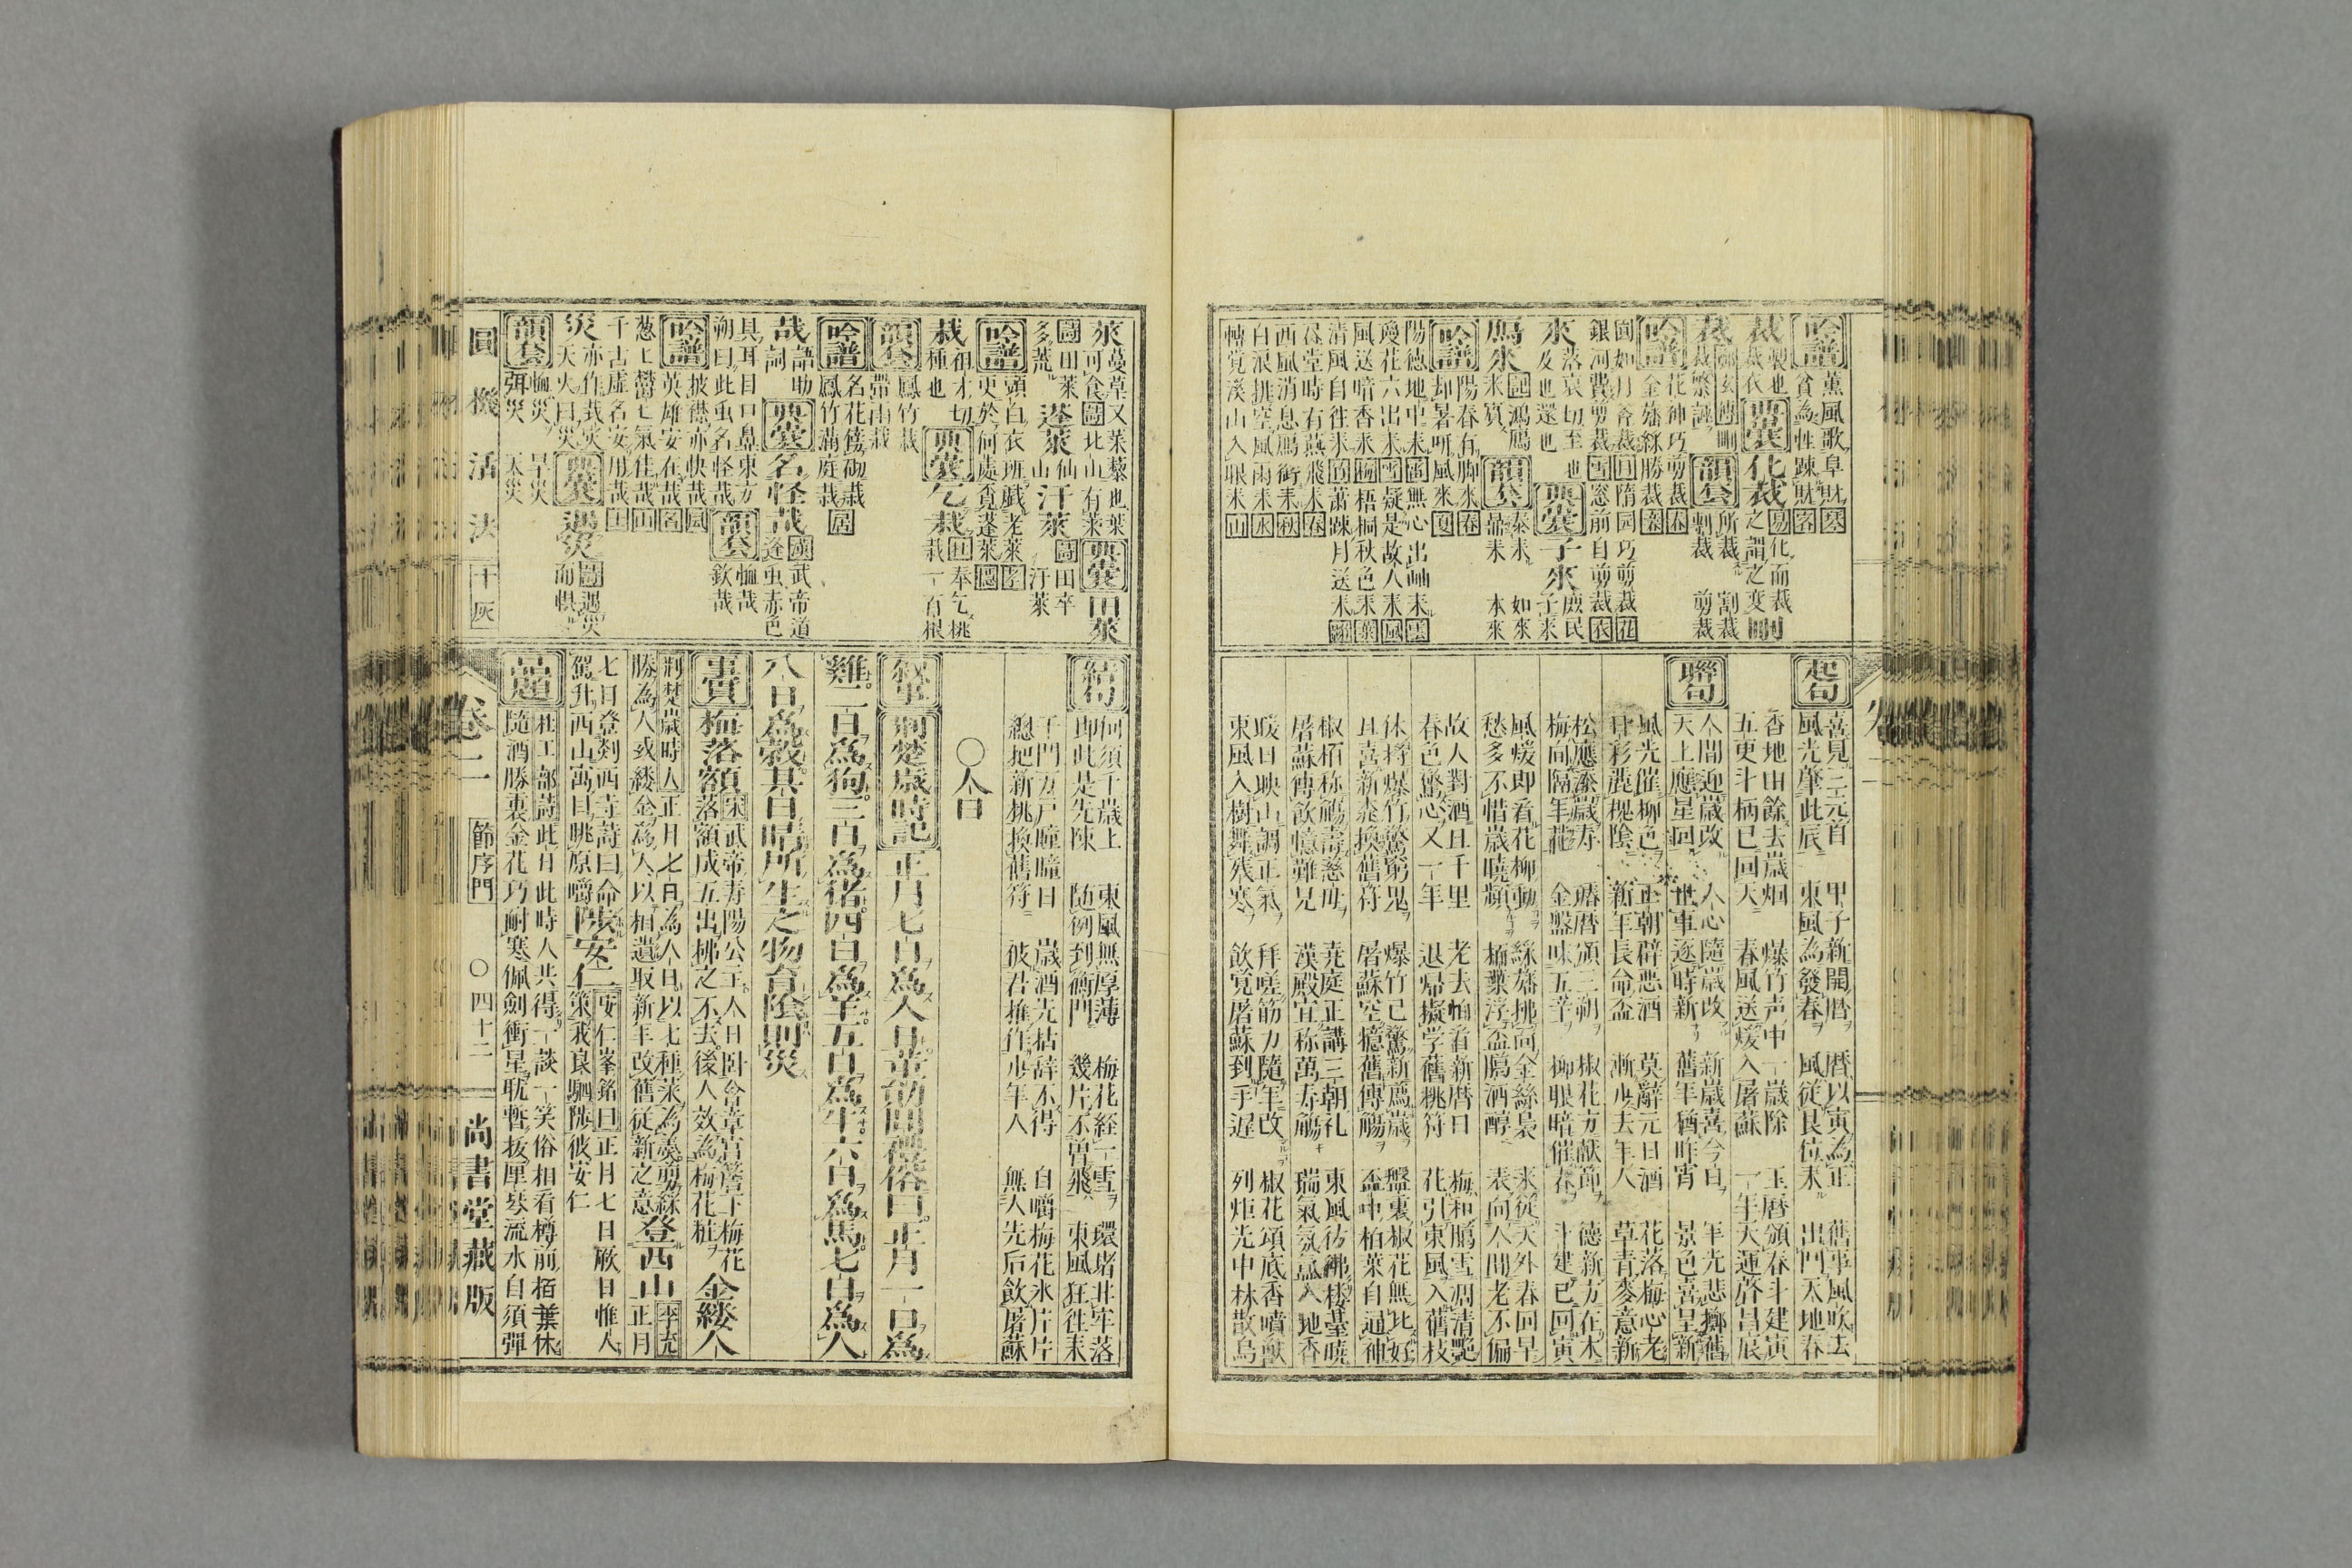 吟譜 薰風歌阜財 寒
貧為性踈財 客
裁 製也裁衣 典叢 化裁 易 化而裁之謂之變
韻套 所裁 割裁 剸裁 剪裁
吟譜 花神巧剪裁 春
金旛綵勝裁
隋园巧剪裁 花
銀河費剪裁 雪 窓前自剪裁 衣
來 落哀切至也及也還也 典叢 子來 庶民子来
鴈來 鴻鴈来賓 韻套 泰来 如來 本來
吟譜 陽春有脚來 春
却暑呼風來 夏
陽德地中来 無心出岫来 雲
瓊花六出来 雪 疑是故人来 風
風送暗香来 梅 梧桐秋色来 葉
清風自往来 蕭踈月送来
草堂時有燕飛来 春
西風消息鴈銜来 秋
白浪排空風雨来 水
轉覚溪山入眼来 山
起句
喜見三元首 甲子新開暦 暦以寅為正 舊事風吹去
風光肇此辰 東風為發春 風従艮位来 出門天地春
香地由餘去歳烟 爆竹声中一歳除 玉暦頒春斗建寅
五更斗柄已回天 春風送煖入屠蘇 一年天運啓昌辰
聯句
人間迎歳改 人心隨歳改 新歳喜今日 年光悲擲舊
天上應星回 世事逐時新 舊年猶昨宵 景色喜呈新
風光催柳色 正朝辟悪酒 莫辭元日酒 花落梅心老
新年長命盃 漸少去年人 草青麥意新
松應添歳寿 暦頒三朔 椒花方献節 德新方在木
梅向隔年花 金盤味五辛 柳眼暗催春 斗建已回寅
風煖即看花柳動 綵旛拂向金絲裊 来従天外春回早
愁多不惜歳暁頽 柏葉浮盃臈酒醇 表向人間老不偏
故人對酒且千里 老去怕看新暦日 梅和臈雪凋清艶
春色驚心又一年 退帰擬学舊桃符 花引東風入舊枝
休将爆竹驚窮鬼 爆竹已驚新鳳歳 盤裏椒花無比好
且喜新桃換舊符 屠蘇空憶舊傳觴 盃中柏葉自通神
椒栢称觴壽慈母 堯庭正講三朝礼 東風彷彿楼臺暁
屠蘇傳飲憶難兄 漢殿宜称萬寿觴 瑞氣氛氳入地香
暖日映山調正氣 拜嗟筋力隨年改 椒花頌底香噴獸
東風入樹舞残寒 飲覚屠蘇到手遅 列炬光中林散烏
萊 蔓草又萊藜也葉可食 北山有萊 典叢 田萊
田萊多荒 蓬萊 仙山 汙萊 田卒汙萊
吟譜 頭白衣班賦老萊
更於何處覓蓬萊
栽 祖才切種也 典叢 乞栽 奉乞桃栽一百根
韻套 鳳竹栽 帯雨栽
吟譜 名花傍砌栽
鳳竹滿庭栽 居
哉 語助詞 典叢 名怪哉 漢武帝道逢虫赤色
具耳目口鼻東方朔曰此虫名怪哉 韻套 恤哉 欽哉
吟譜 披襟亦快哉 風
英雄安在哉
葱上欝七氣佳哉
千古虚名安用哉
災 亦作烖灾天火曰災 典叢 遇災 遇災而惧
韻套 恤災 旱災 弭災 天災
圓機活法 十灰
結句
何須千歳上 東風無厚薄 梅花経一雪 環堵非牢落
即此是先陳 随例到衡門 幾片不曽飛 東風狂往来
千門万戸曈曈日 歳酒先拈辞不得 自嚼梅花氷片片
總把新桃換舊符 彼君推作少年人 無人先后飲屠蘇
○人日
叙事 荊楚歳時記 正月七日為人日董勛問禮俗曰正月一日為
雞二日為狗三日為猪四日為羊五日為牛六日為馬七日為人
八日為穀其日晴所生之物育陰則災
事實 梅落額 宋武帝寿陽公主人日卧含章宮簷下梅花落額成五出拂之不去後人效為梅花粧 金縷人
荆楚歳時人 正月七日為人日以七種菜為羮剪綵勝為人或縷金為人以相遺取新年改舊従新之意 登西山 李充 正月
七日登剡西寺詩曰命駕升西山寓目眺原嚼 陟安仁 安仁峯銘曰 正月七日厥日惟人策我良駟陟彼安仁
品題 杜工部詩 此日此時人共得一談一笑俗相看樽前栢葉休
隨酒勝裏金花巧耐寒佩劍衝星聊暫抜匣琴流水自須彈
卷二 節序門 ○四十二 尚書堂藏版